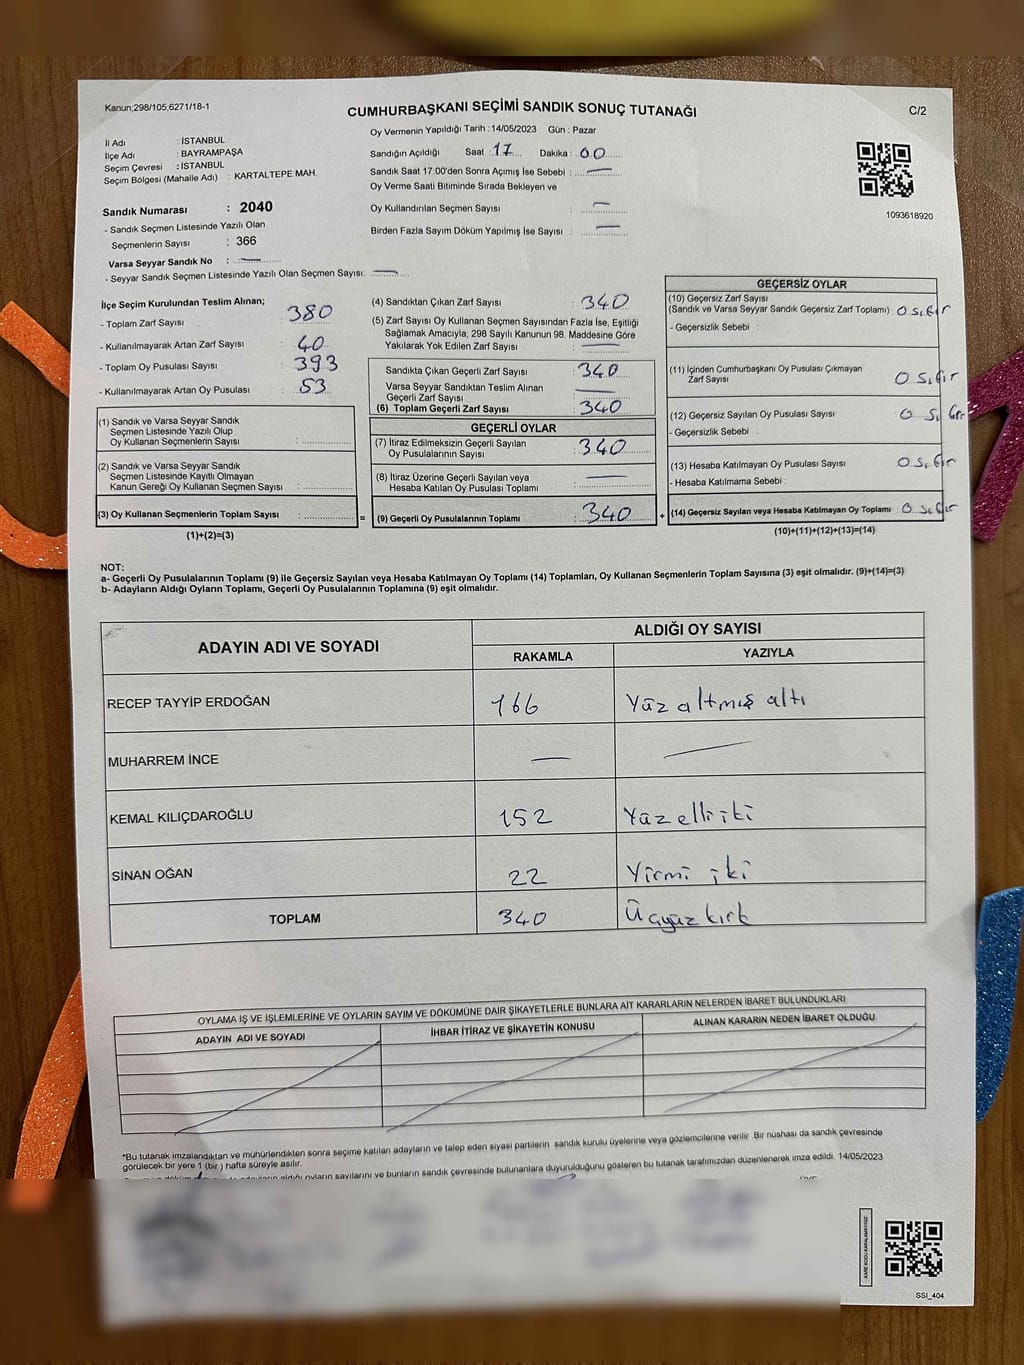 Kanun;298/105,6271/18-1
CUMHURBAŞKANI SEÇİMİ SANDIK SONUÇ TUTANAĞI
C/2
İl Adı : İSTANBUL
İlçe Adı : BAYRAMPAŞA
Seçim Çevresi : İSTANBUL
Seçim Bölgesi (Mahalle Adı) : KARTALTEPE MAH.
Sandık Numarası : 2040
- Sandık Seçmen Listesinde Yazılı Olan
Seçmenlerin Sayısı : 366
Varsa Seyyar Sandık No : —
- Seyyar Sandık Seçmen Listesinde Yazılı Olan Seçmen Sayısı: —
Oy Vermenin Yapıldığı Tarih : 14/05/2023 Gün : Pazar
Sandığın Açıldığı Saat : 17 Dakika : 00
Sandık Saat 17:00'den Sonra Açımış İse Sebebi : —
Oy Verme Saati Bitiminde Sırada Bekleyen ve
Oy Kullandırılan Seçmen Sayısı : —
Birden Fazla Sayım Döküm Yapılmış İse Sayısı : —
1093618920
İlçe Seçim Kurulundan Teslim Alınan;
- Toplam Zarf Sayısı : 380
- Kullanılmayarak Artan Zarf Sayısı : 40
- Toplam Oy Pusulası Sayısı : 393
- Kullanılmayarak Artan Oy Pusulası : 53
(1) Sandık ve Varsa Seyyar Sandık
Seçmen Listesinde Yazılı Olup
Oy Kullanan Seçmenlerin Sayısı :
(2) Sandık ve Varsa Seyyar Sandık
Seçmen Listesinde Kayıtlı Olmayan
Kanun Gereği Oy Kullanan Seçmen Sayısı :
(3) Oy Kullanan Seçmenlerin Toplam Sayısı : =
(1)+(2)=(3)
(4) Sandıktan Çıkan Zarf Sayısı : 340
(5) Zarf Sayısı Oy Kullanan Seçmen Sayısından Fazla İse, Eşitliği
Sağlamak Amacıyla, 298 Sayılı Kanunun 98. Maddesine Göre
Yakılarak Yok Edilen Zarf Sayısı : —
Sandıkta Çıkan Geçerli Zarf Sayısı : 340
Varsa Seyyar Sandıktan Teslim Alınan
Geçerli Zarf Sayısı : —
(6) Toplam Geçerli Zarf Sayısı : 340
GEÇERLİ OYLAR
(7) İtiraz Edilmeksizin Geçerli Sayılan
Oy Pusulalarının Sayısı : 340
(8) İtiraz Üzerine Geçerli Sayılan veya
Hesaba Katılan Oy Pusulası Toplamı : —
(9) Geçerli Oy Pusulalarının Toplamı : 340 +
GEÇERSİZ OYLAR
(10) Geçersiz Zarf Sayısı
(Sandık ve Varsa Seyyar Sandık Geçersiz Zarf Toplamı) : 0 sıfır
- Geçersizlik Sebebi :
(11) İçinden Cumhurbaşkanı Oy Pusulası Çıkmayan
Zarf Sayısı 0 sıfır
(12) Geçersiz Sayılan Oy Pusulası Sayısı : 0 sıfır
- Geçersizlik Sebebi :
(13) Hesaba Katılmayan Oy Pusulası Sayısı : 0 sıfır
- Hesaba Katılmama Sebebi :
(14) Geçersiz Sayılan veya Hesaba Katılmayan Oy Toplamı : 0 sıfır
(10)+(11)+(12)+(13)=(14)
NOT:
a- Geçerli Oy Pusulalarının Toplamı (9) ile Geçersiz Sayılan veya Hesaba Katılmayan Oy Toplamı (14) Toplamları, Oy Kullanan Seçmenlerin Toplam Sayısına (3) eşit olmalıdır. (9)+(14)=(3)
b- Adayların Aldığı Oyların Toplamı, Geçerli Oy Pusulalarının Toplamına (9) eşit olmalıdır.
ADAYIN ADI VE SOYADI ALDIĞI OY SAYISI
RAKAMLA YAZIYLA
RECEP TAYYİP ERDOĞAN 166 Yüz altmış altı
MUHARREM İNCE — —
KEMAL KILIÇDAROĞLU 152 Yüz elli iki
SİNAN OĞAN 22 Yirmi iki
TOPLAM 340 Üçyüz kırk
OYLAMA İŞ VE İŞLEMLERİNE VE OYLARIN SAYIM VE DÖKÜMÜNE DAİR ŞİKAYETLERLE BUNLARA AİT KARARLARIN NELERDEN İBARET BULUNDUKLARI
ADAYIN ADI VE SOYADI İHBAR İTİRAZ VE ŞİKAYETİN KONUSU ALINAN KARARIN NEDEN İBARET OLDUĞU
*Bu tutanak imzalandıktan ve mühürlendikten sonra seçime katılan adayların ve talep eden siyasi partilerin sandık kurulu üyelerine veya gözlemcilerine verilir. Bir nüshası da sandık çevresinde
görülecek bir yere 1 (bir ) hafta süreyle asılır.
adayların aldığı oyların sayılarını ve bunların sandık çevresinde bulunanlara duyurulduğunu gösteren bu tutanak tarafımızdan düzenlenerek imza edildi. 14/05/2023
SSI_404